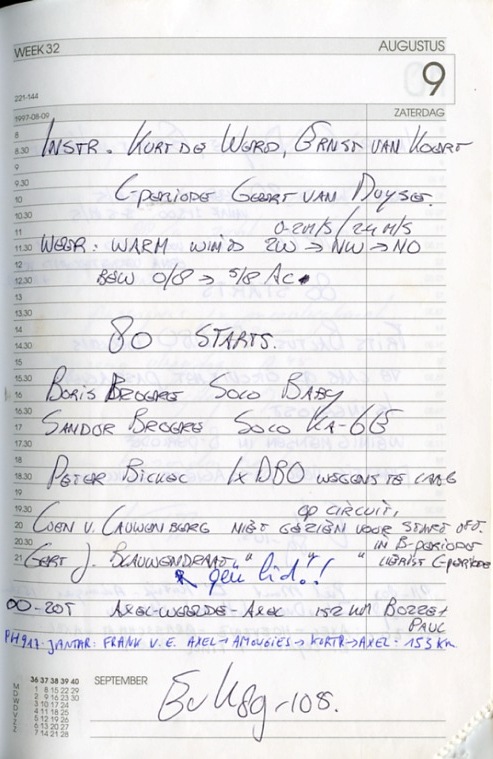 WEEK 32
AUGUSTUS
9
221-144
1997-08-09
ZATERDAG
8
8.30 INSTR. KURT DE WERD, ERNST VAN KOERT
9
9.30
10 C-PERIODE GEERT VAN DUYSE.
10.30
11 0-2 M/S / 24 M/S
11.30 WEER: WARM WIND ZW → NW → NO
12
12.30 BEW 0/8 → 5/8 AC.
13
13.30
14
14.30 80 STARTS.
15
15.30
16 BORIS BROERE SOLO BABY
16.30
17 SANDOR BROERE SOLO KA-6E
17.30
18
18.30 PETER BICKEL 1x DBO WEGENS TE LAAG
19
19.30 OP CIRCUIT,
20 COEN V. CAUWENBERG NIET GEZIEN VOOR START OFT.
20.30 IN B-PERIODE
21 GERT J. BLAUWENDRAAT " " " LIERIST C-PERIODE
geen lid.!
OO-ZOT AXEL-WEELDE-AXEL 152 KM
PAUL
PH917-JANTAR: FRANK V. E. AXEL → AMOUGIES → KORTR → AXEL: 153 Km.
36 37 38 39 40
M 1 8 15 22 29
D 2 9 16 23 30
W 3 10 17 24
D 4 11 18 25
V 5 12 19 26
Z 6 13 20 27
Z 7 14 21 28
SEPTEMBER